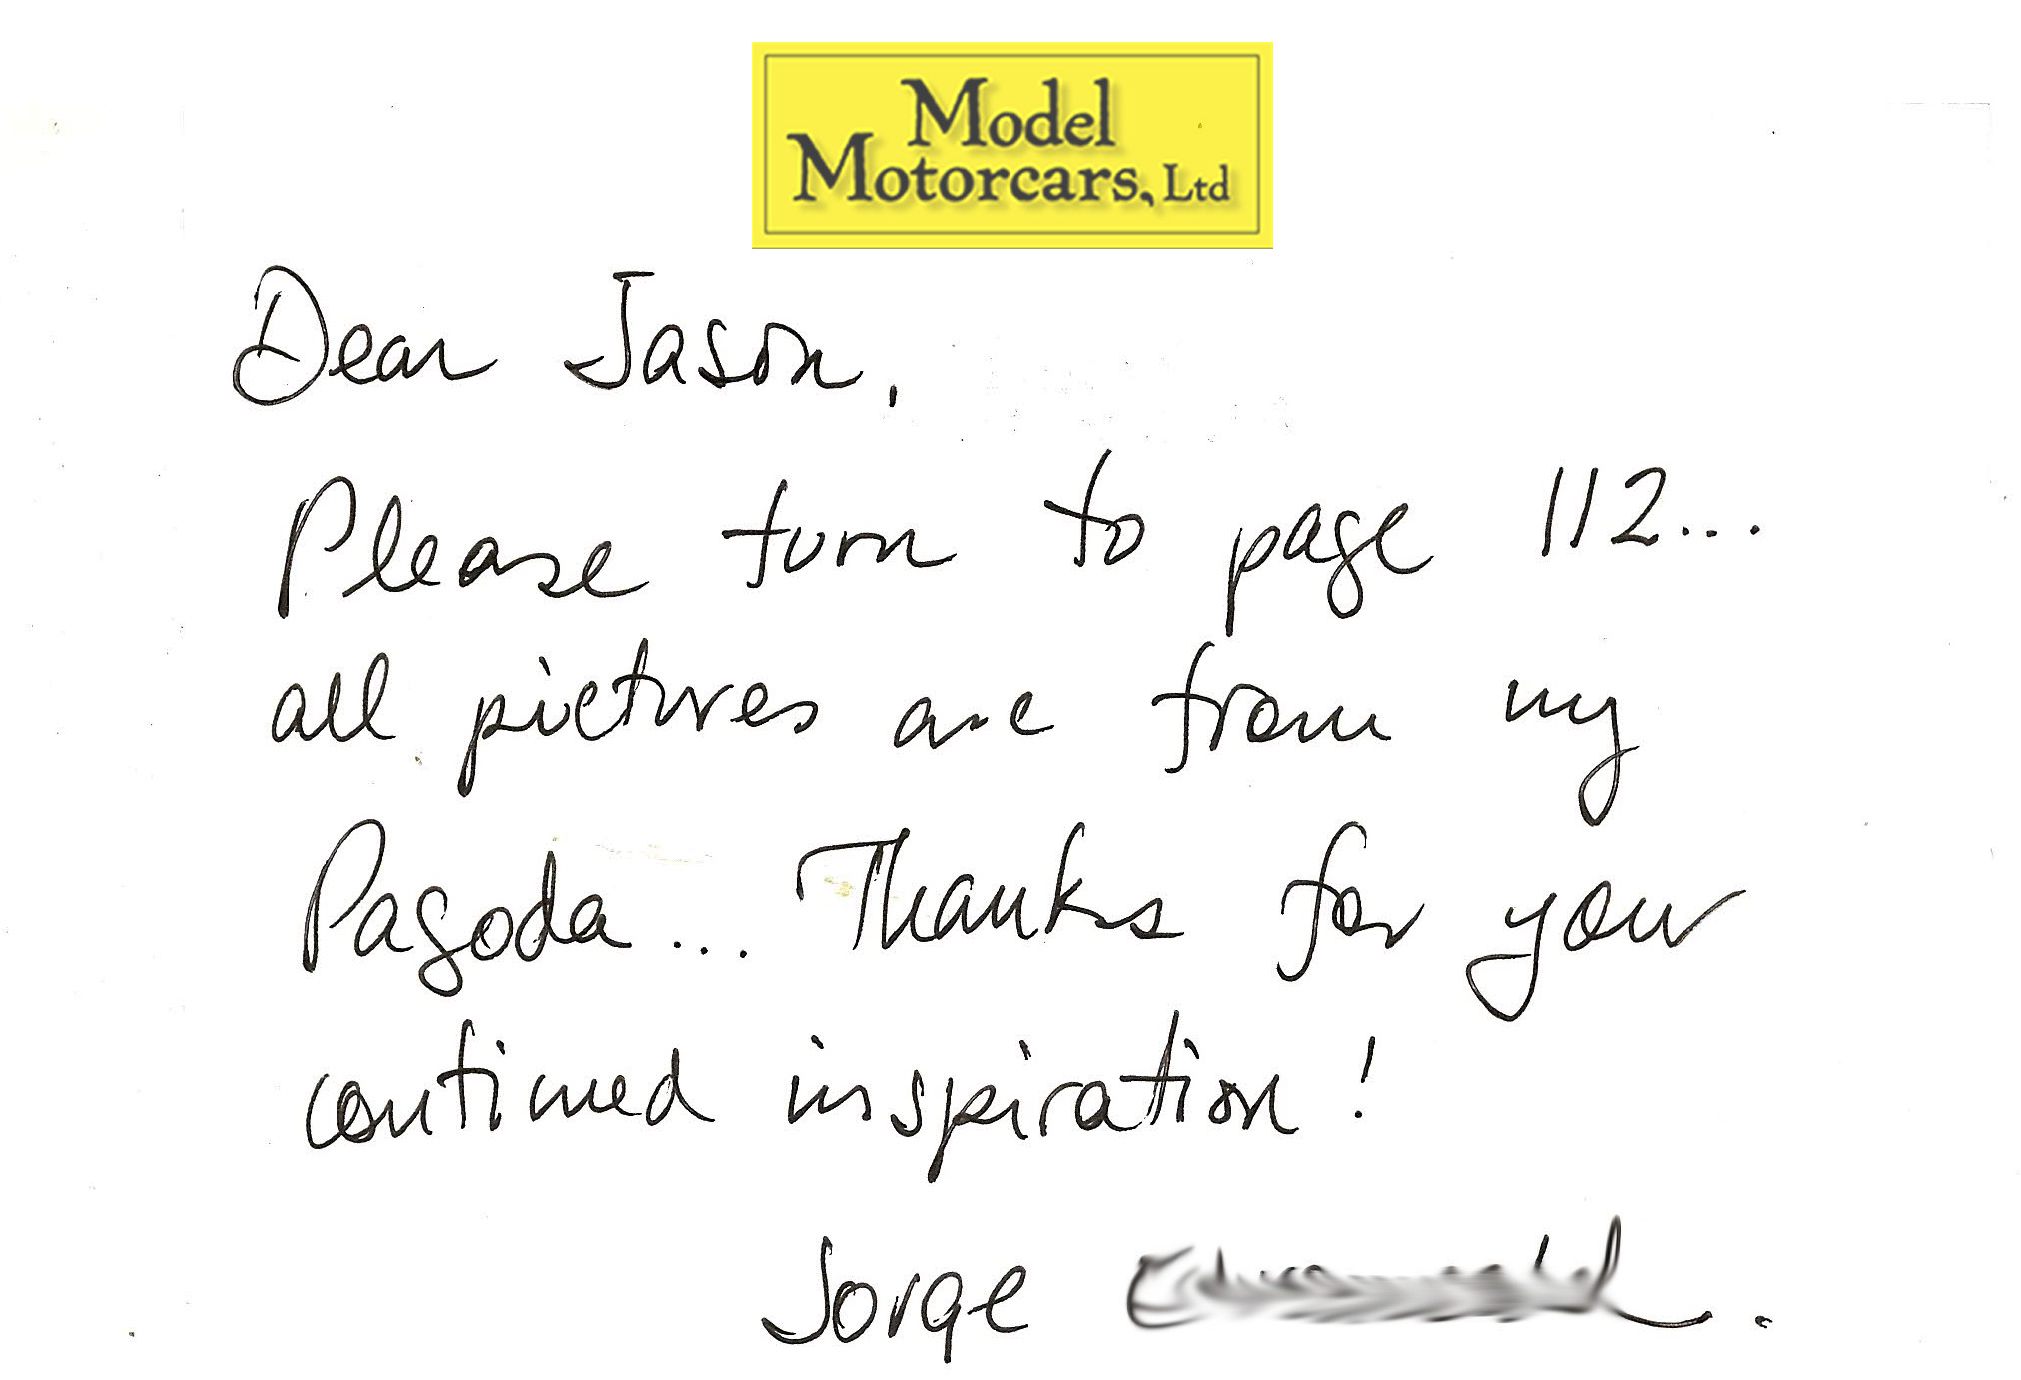 Model
Motorcars, Ltd
Dear Jason,
Please turn to page 112...
all pictures are from my
Pagoda... Thanks for your
continued inspiration!
Jorge